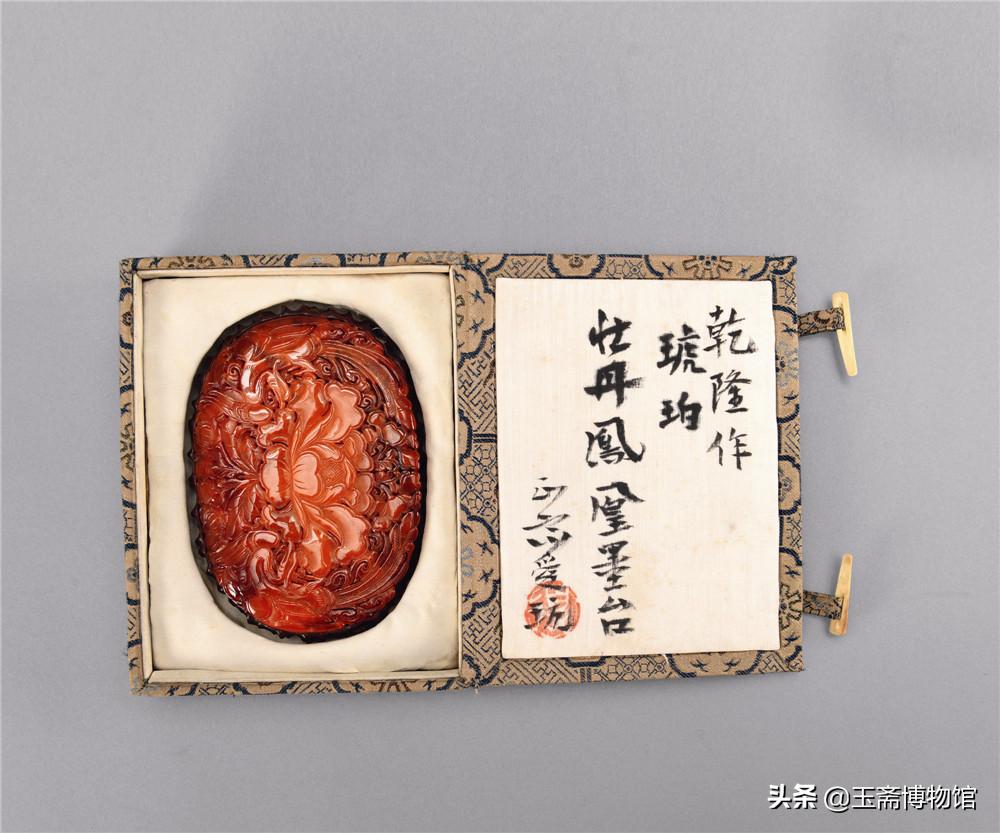 乾隆作
琥珀
牡丹鳳凰墨台
愛玩
头条 @玉斋博物馆